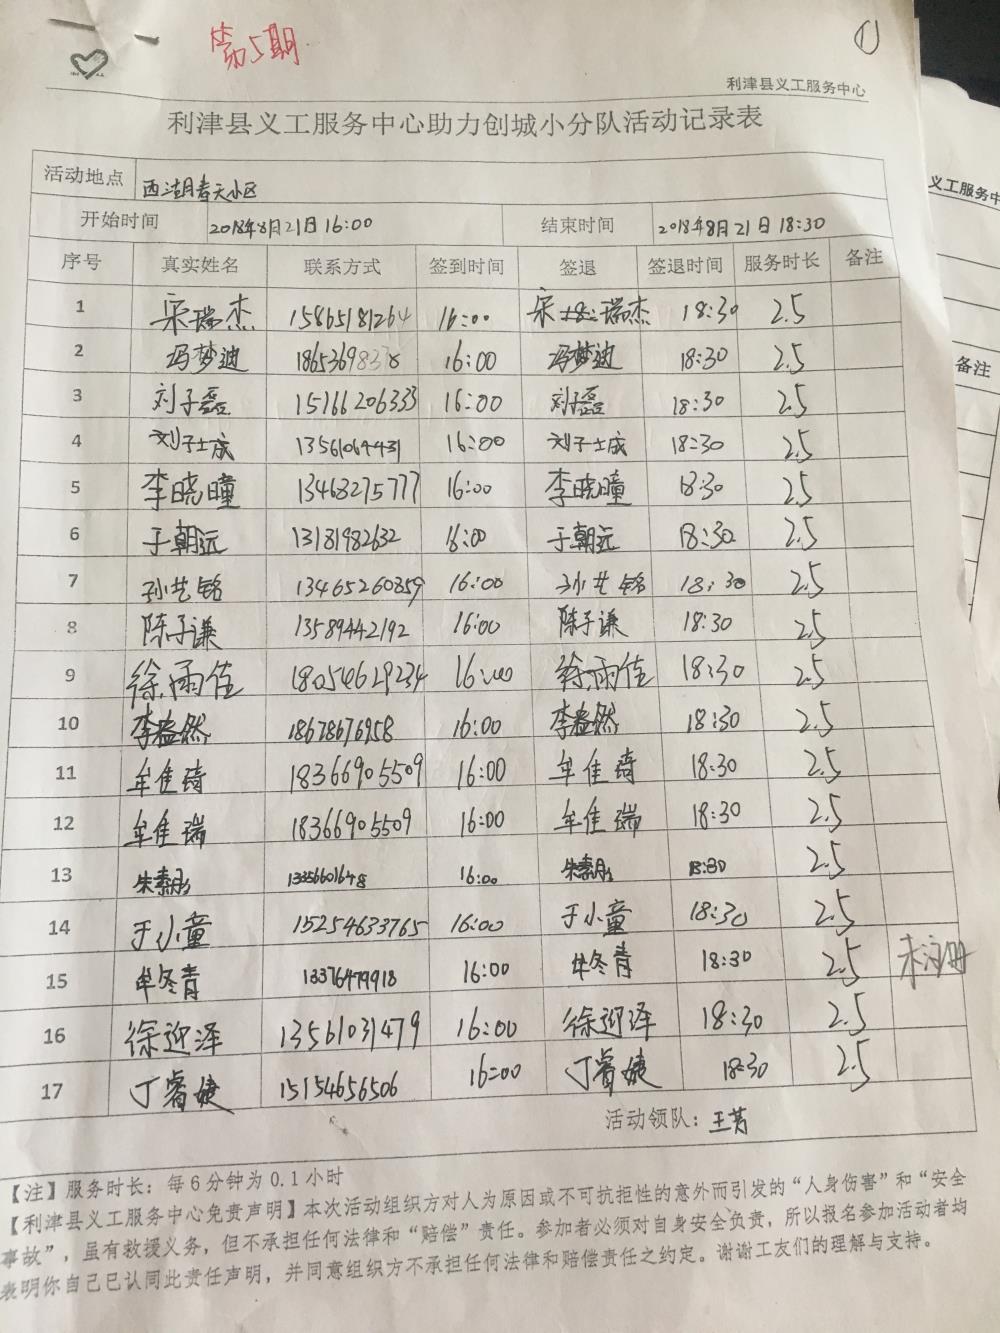 第5期
1
利津县义工服务中心
利津县义工服务中心助力创城小分队活动记录表
活动地点 西湖春天小区
开始时间 2018年8月21日16:00 结束时间 2018年8月21日18:30
序号 真实姓名 联系方式 签到时间 签退 签退时间 服务时长 备注
1 宋瑞杰 15865181264 16:00 宋 瑞杰 18:30 2.5
2 冯梦迪 18653698378 16:00 冯梦迪 18:30 2.5
3 刘子磊 15166206333 16:00 刘子磊 18:30 2.5
4 刘子士成 13561064431 16:00 刘子士成 18:30 2.5
5 李晓曈 13463275777 16:00 李晓曈 18:30 2.5
6 于朝远 13181982632 16:00 于朝远 18:30 2.5
7 孙艺铭 13465260859 16:00 孙艺铭 18:30 2.5
8 陈子谦 13589442192 16:00 陈子谦 18:30 2.5
9 徐雨佳 18054629234 16:00 徐雨佳 18:30 2.5
10 李益然 18678676958 16:00 李益然 18:30 2.5
11 牟佳琦 18366905509 16:00 牟佳琦 18:30 2.5
12 牟佳瑞 18366905509 16:00 牟佳瑞 18:30 2.5
13 朱素彤 13356601648 16:00 朱素彤 18:30 2.5
14 于小童 15254633765 16:00 于小童 18:30 2.5
15 牟冬青 13376479918 16:00 牟冬青 18:30 2.5 未注册
16 徐迎泽 13561031479 16:00 徐迎泽 18:30 2.5
17 丁睿婕 15154656506 16:00 丁睿婕 18:30 2.5
活动领队：王芳
【注】服务时长：每6分钟为0.1小时
【利津县义工服务中心免责声明】本次活动组织方对人为原因或不可抗拒性的意外而引发的“人身伤害”和“安全
事故”，虽有救援义务，但不承担任何法律和“赔偿”责任。参加者必须对自身安全负责，所以报名参加活动者均
表明你自己已认同此责任声明，并同意组织方不承担任何法律和赔偿责任之约定。谢谢工友们的理解与支持。
义工服务中
备注